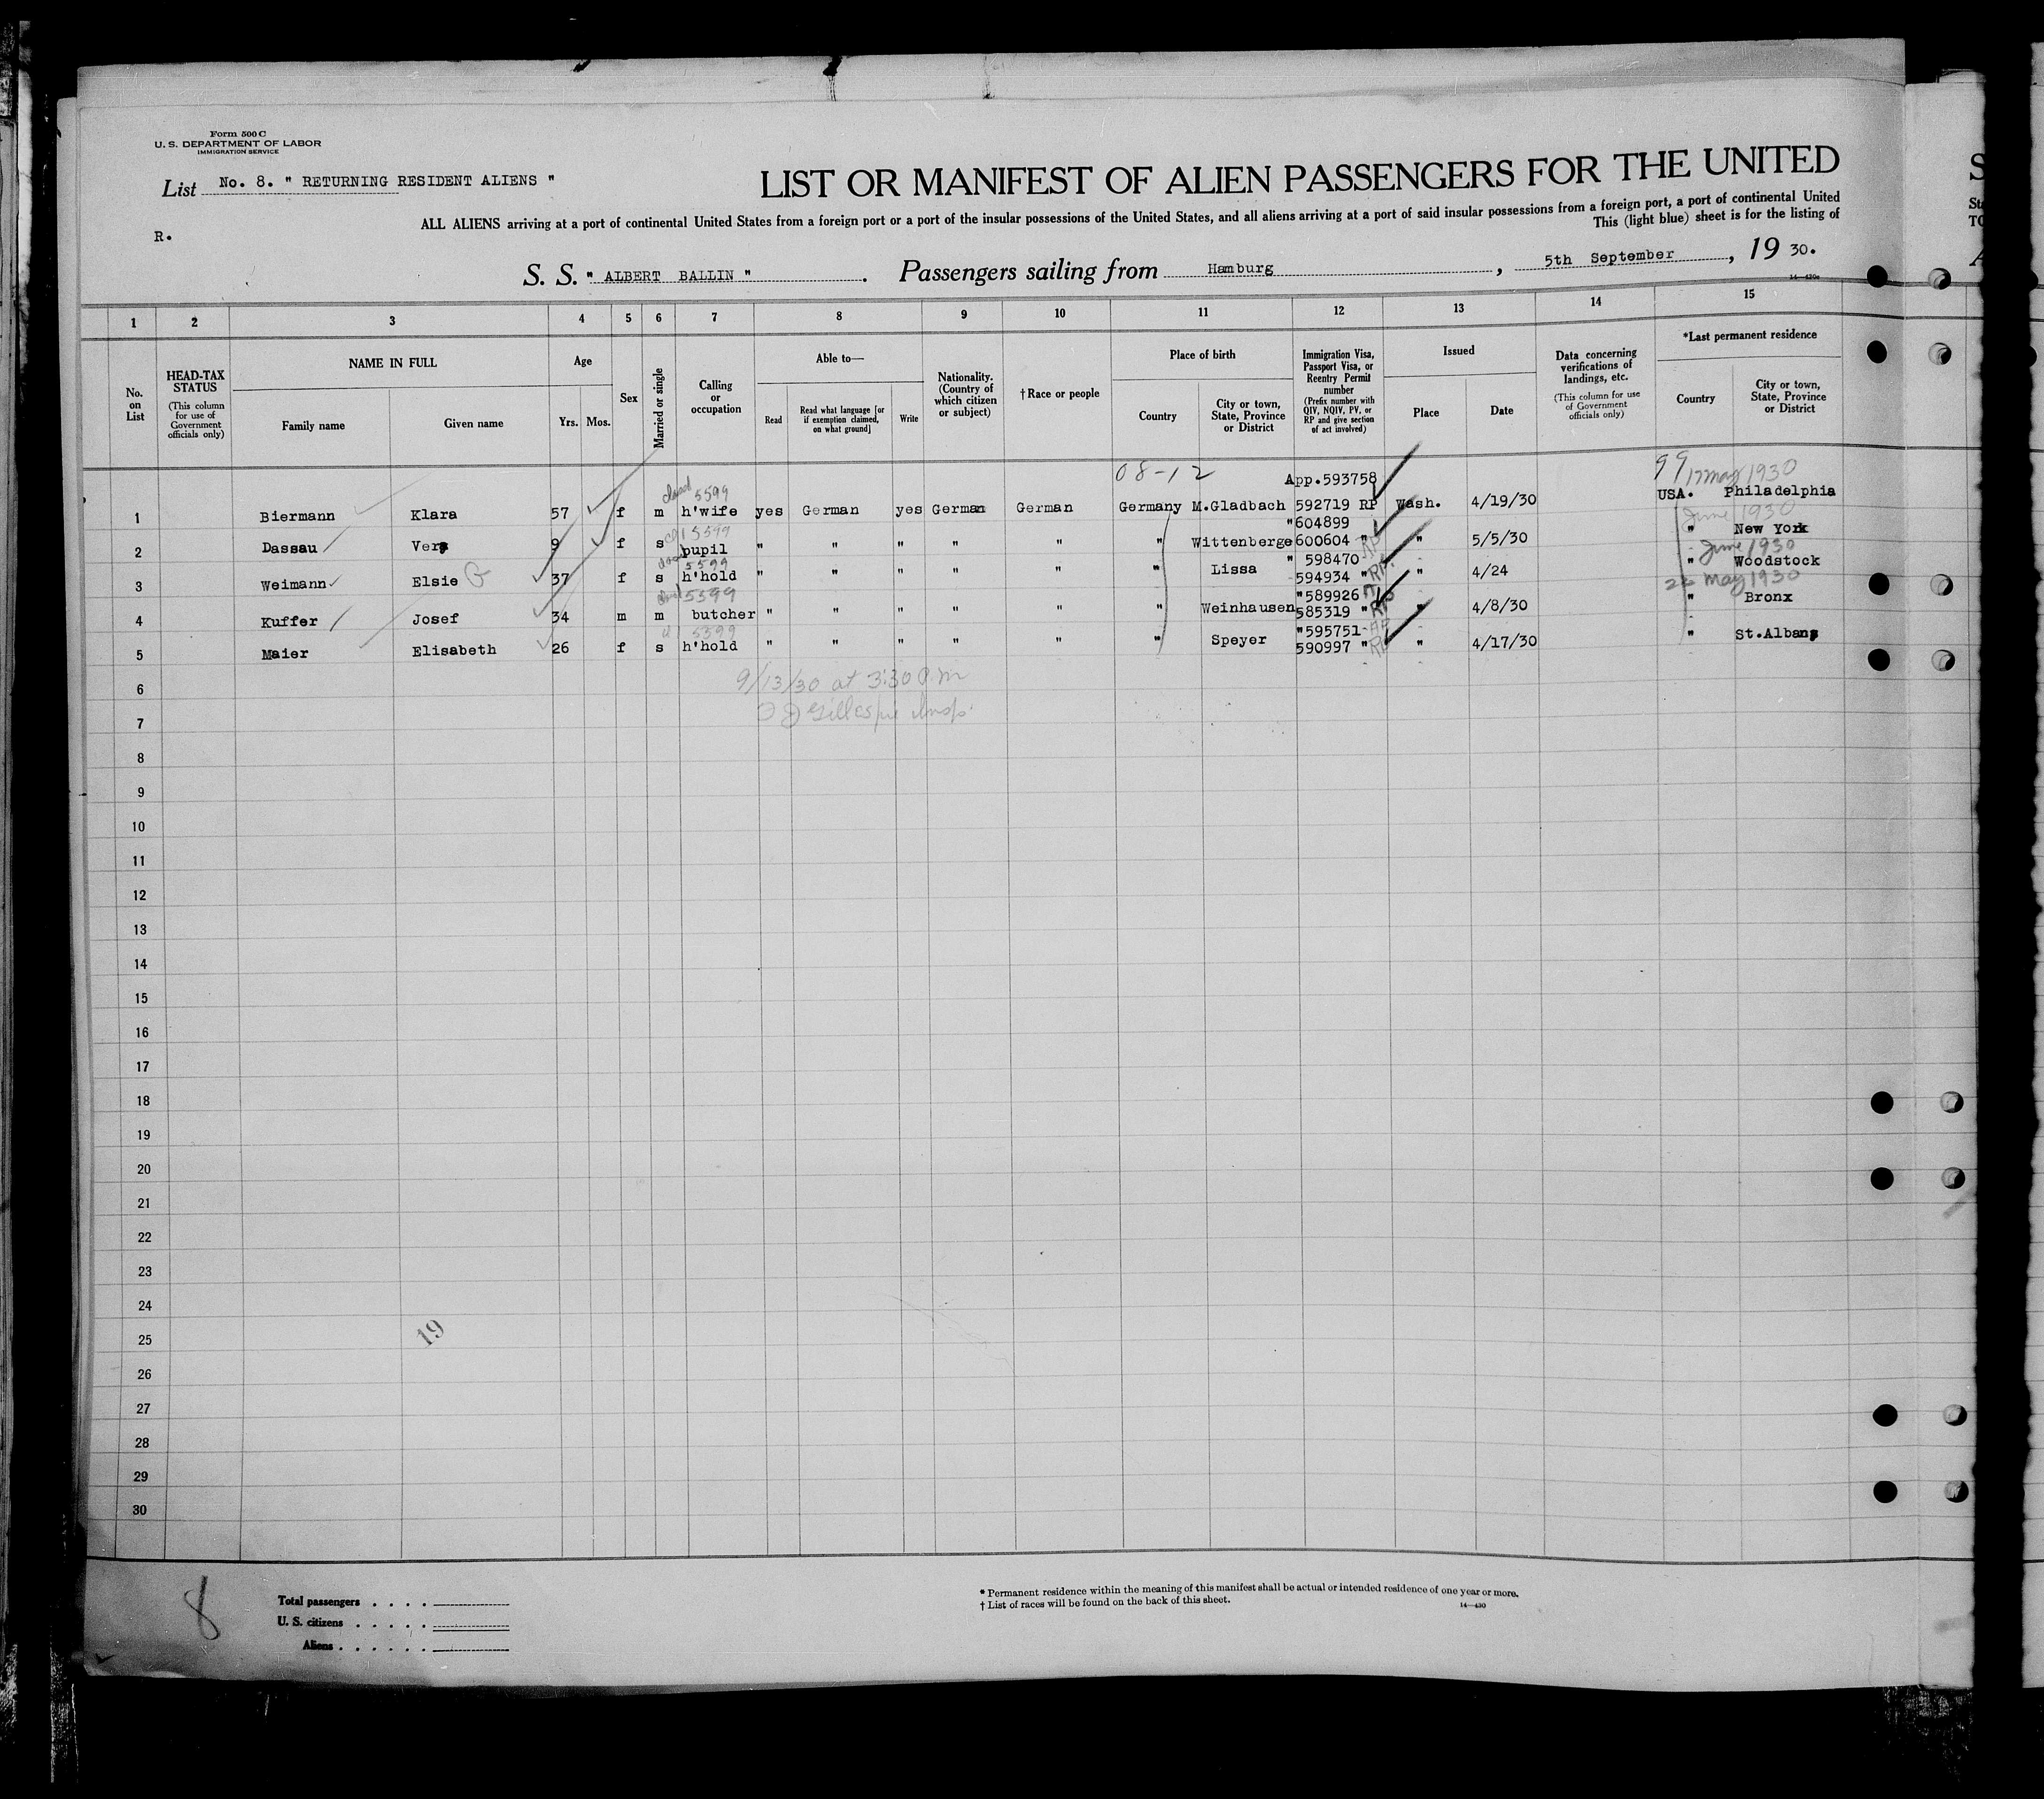 Form 500 C
U. S. DEPARTMENT OF LABOR
IMMIGRATION SERVICE
List No. 8. " RETURNING RESIDENT ALIENS "
LIST OR MANIFEST OF ALIEN PASSENGERS FOR THE UNITED
ALL ALIENS arriving at a port of continental United States from a foreign port or a port of the insular possessions of the United States, and all aliens arriving at a port of said insular possessions from a foreign port, a port of continental United
This (light blue) sheet is for the listing of
R.
S. S. " ALBERT BALLIN " . Passengers sailing from Hamburg , 5th September , 19 30.
14—430
1 2 3 4 5 6 7 8 9 10 11 12 13 14 15
No. on List
HEAD-TAX STATUS (This column for use of Government officials only)
NAME IN FULL
Family name
Given name
Age
Yrs. Mos.
Sex
Married or single
Calling or occupation
Able to—
Read
Read what language [or if exemption claimed, on what ground]
Write
Nationality. (Country of which citizen or subject)
† Race or people
Place of birth
Country
City or town, State, Province or District
Immigration Visa, Passport Visa, or Reentry Permit number (Prefix number with QIV, NQIV, PV, or RP and give section of act involved)
Issued
Place
Date
Data concerning verifications of landings, etc. (This column for use of Government officials only)
*Last permanent residence
Country
City or town, State, Province or District
08-12 App.593758 99 17 May 1930
5599
1 Biermann Klara 57 f m h'wife yes German yes German German Germany M.Gladbach 592719 RP Wash. 4/19/30 USA. Philadelphia
5599 "604899 June 1930
2 Dassau Vera 9 f s pupil " " " " " " Wittenberge 600604 " RP " 5/5/30 " New York
5599 " 598470 June 1930
3 Weimann Elsie G 37 f s h'hold " " " " " " Lissa 594934 " RP " 4/24 " Woodstock
5599 "589926 22 May 1930
4 Kuffer Josef 34 m m butcher " " " " " " Weinhausen 585319 " RP " 4/8/30 " Bronx
5599 "595751
5 Maier Elisabeth 26 f s h'hold " " " " " " Speyer 590997 " RP " 4/17/30 " St.Albans
6
9/13/30 at 3:30 P.m
7
Gillespie Insp.
8
9
10
11
12
13
14
15
16
17
18
19
20
21
22
23
24
25
19
26
27
28
29
30
8
Total passengers . . . .
U. S. citizens . . . . .
Aliens . . . . . .
* Permanent residence within the meaning of this manifest shall be actual or intended residence of one year or more.
† List of races will be found on the back of this sheet.
14—430